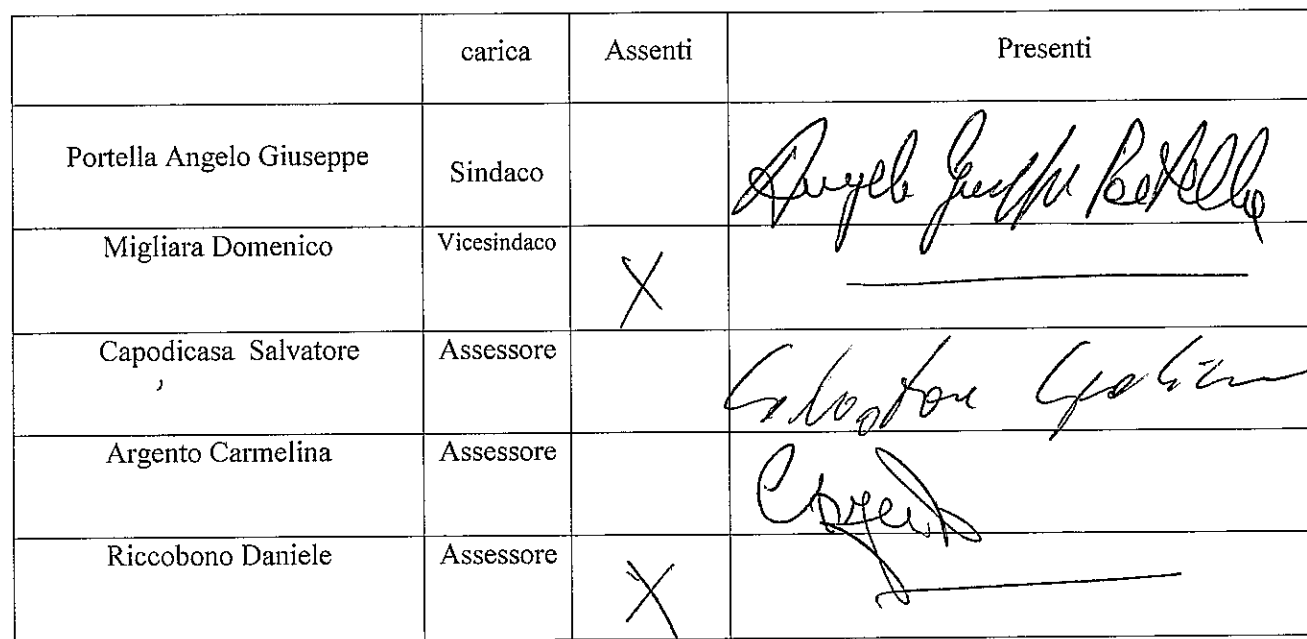 carica Assenti Presenti
Portella Angelo Giuseppe Sindaco Angelo Giuseppe Portella
Migliara Domenico Vicesindaco X
Capodicasa Salvatore Assessore Salvatore
Argento Carmelina Assessore
Riccobono Daniele Assessore X